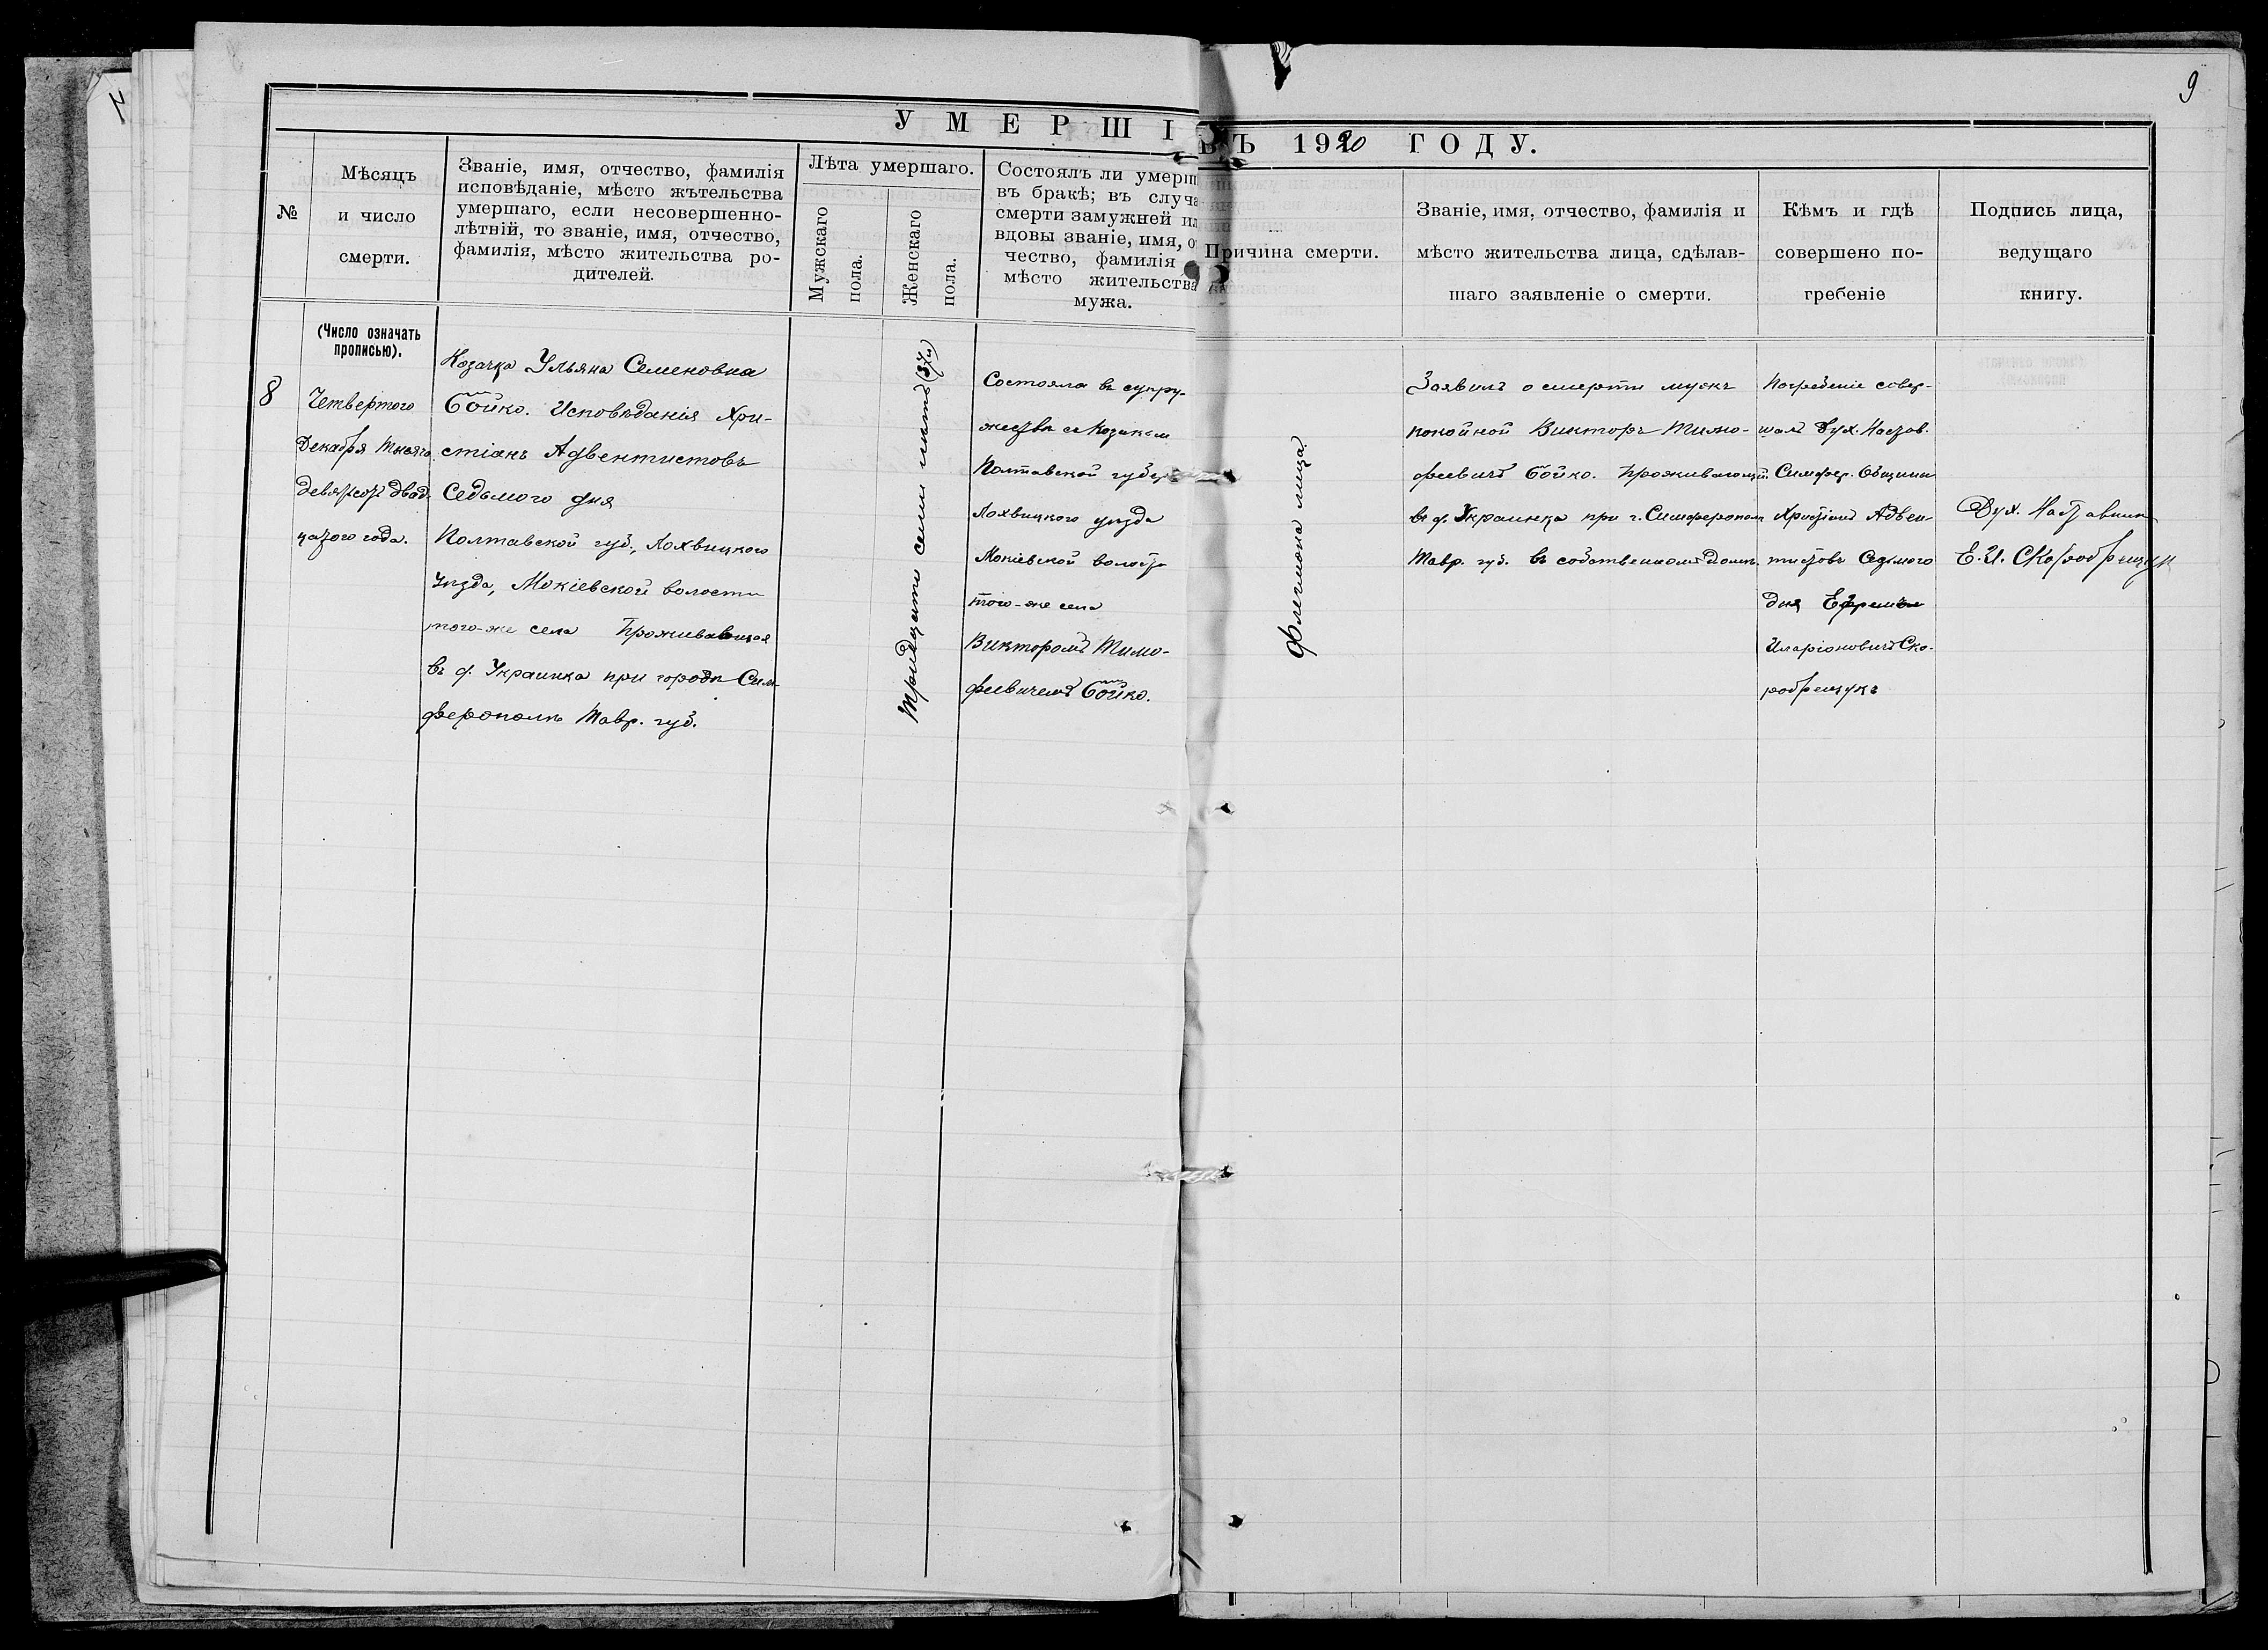 9
УМЕРШІ
ВЪ 1920 ГОДУ.
№
Мѣсяцъ
и число
смерти.
Званіе, имя, отчество, фамилія
исповѣданіе, мѣсто жѣтельства
умершаго, если несовершенно-
лѣтній, то званіе, имя, отчество,
фамилія, мѣсто жительства ро-
дителей.
Лѣта умершаго.
Мужскаго
пола.
Женскаго
пола.
Состоялъ ли умерш
въ бракѣ; въ случа
смерти замужней ил
вдовы званіе, имя, о
чество, фамилія
мѣсто жительства
мужа.
Причина смерти.
Званіе, имя, отчество, фамилія и
мѣсто жительства лица, сдѣлав-
шаго заявленіе о смерти.
Кѣмъ и гдѣ
совершено по-
гребеніе
Подпись лица,
ведущаго
книгу.
(Число означать
прописью).
8
Четвертого
Декабря Тысяча
девятсот двад-
цатого года.
Козачка Ульяна Семеновна
Бойко. Исповѣданія Хри-
стіанъ Адвентистовъ
Седьмого дня
Полтавской губ., Лохвицкого
уѣзда, Мокіевской волости
того-же села Проживавшая
въ д. Украинка при городѣ Сим-
ферополѣ Тавр. губ.
Тридцати семи лѣтъ (37и)
Состояла въ супру-
жествѣ съ Козакомъ
Полтавской губер
Лохвицкого уѣзда
Мокіевской волости
того-же села
Викторомъ Тимо-
феевичемъ Бойко.
Флегмона лица.
Заявилъ о смерти мужъ
покойной Викторъ Тимо-
феевичъ Бойко. Проживающій
въ д. Украинка при г. Симферополѣ
Тавр. губ. въ собственномъ домѣ.
Погребеніе совер-
шалъ Дух. Настав.
Симфер. Общины
Христіанъ Адвен-
тистовъ Седьмого
дня Ефремъ
Иларіоновичъ Ско-
робрещукъ
Дух. Наставник
Е. И. Скоробрещук